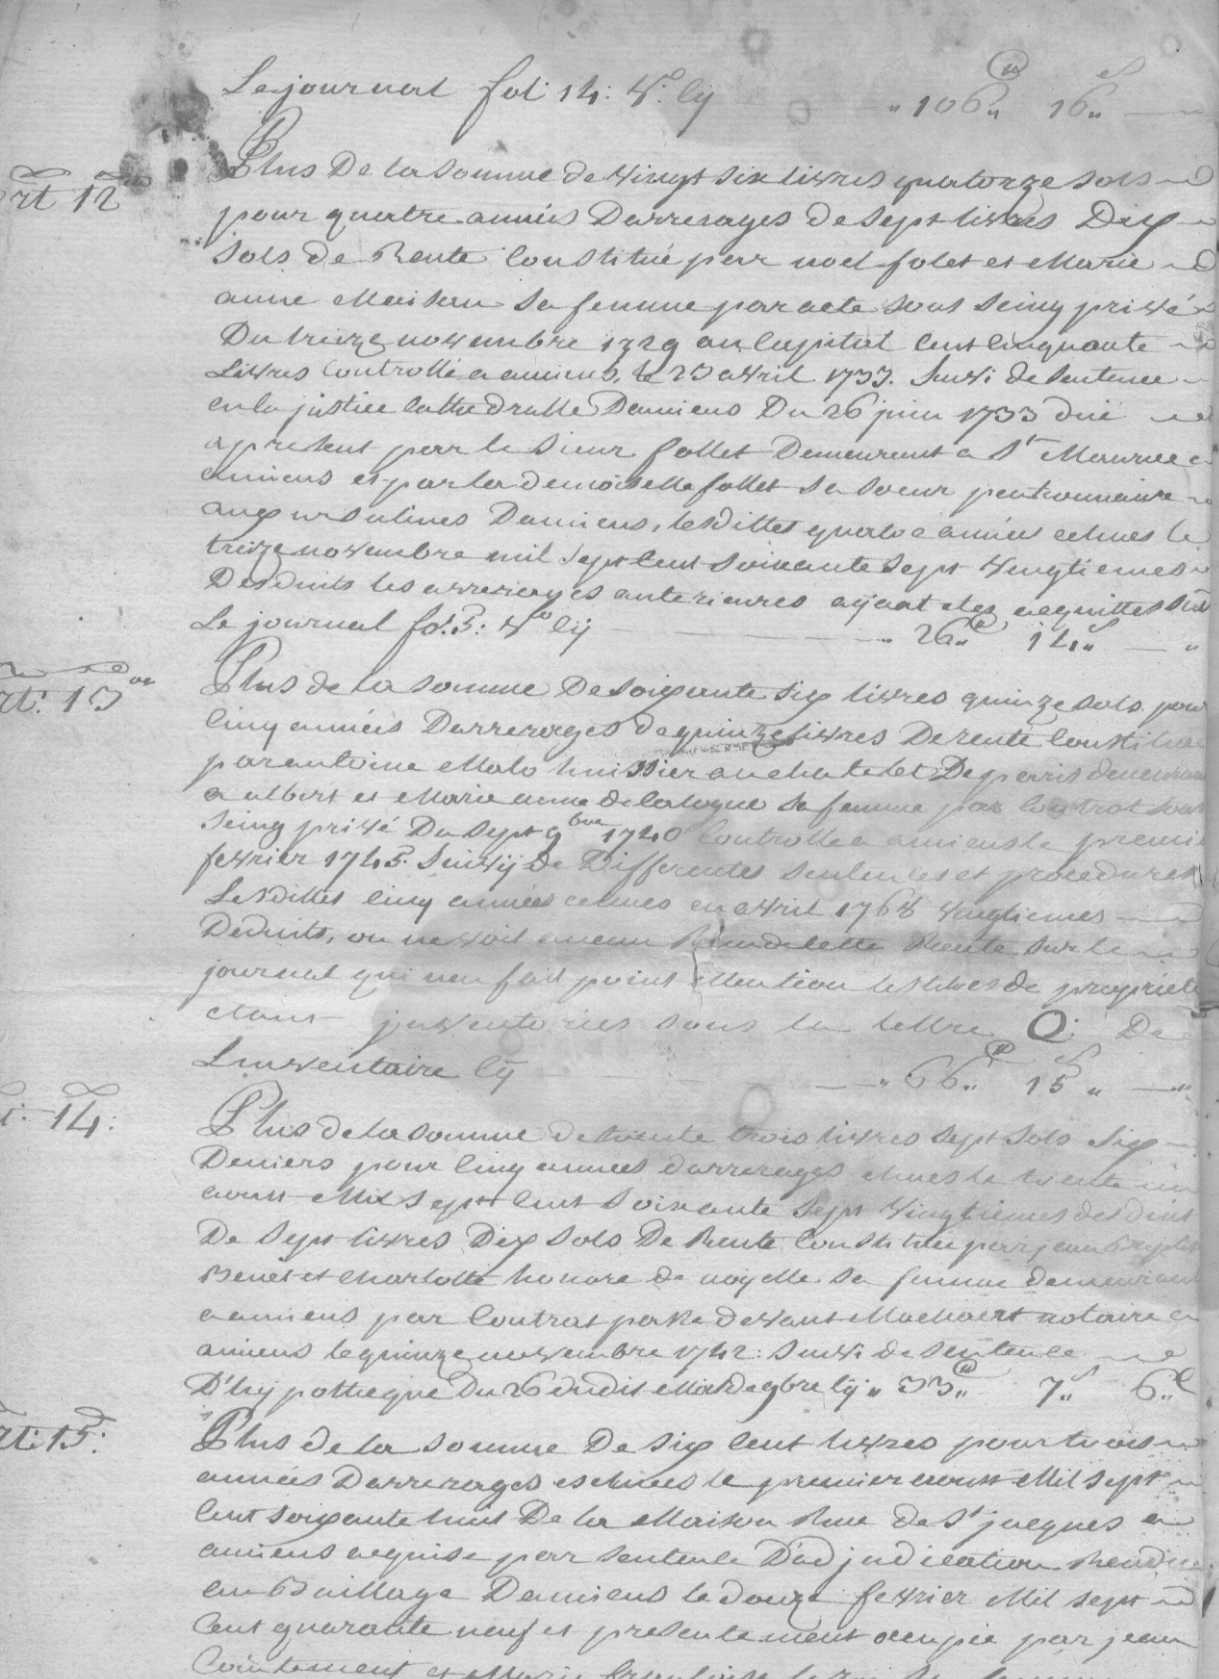 Le journal fol: 14: V.° Cy " 106.. 16..
rt 12 Plus De la somme de vingt six livres quatorze sols
pour quatre années Darrerages de sept livres Dix
sols de Rente Constitué par noel folet et Marie
anne Maison sa femme par acte sous seing privé
Du treize novembre 1729 au Capital Cent Cinquante
Livres Controllé a amiens, le 23 avril 1733. Suivi de sentence
en la justice Cathedralle Damiens Du 26 juin 1733 due
apresent par le sieur follet Demeurant a St Maurice a
amiens et par la demoiselle follet sa soeur pentionnaire
aux ursulines Damiens, lesdittes quatre années echues le
treize novembre mil sept Cent soixante sept vingtiemes
Desduits les arrerages anterieures ayant etez acquittes sur
Le journal fol. 3: V.° Cy " 26.. 14.. "
rt: 13 Plus de la somme De soixante six livres quinze sols pour
Cinq années Darrerages de quinze livres De rente Constituée
par antoine Malo huissier au chatelet De paris demeurant
a albert et Marie anne sa femme par Contrat sous
seing privé Du sept 9bre 1740 Controllé a amiens le premier
fevrier 1745. Suivy de Differentes sentences et procedures
Lesdittes Cinq années echues en avril 1768 vingtiemes
Deduits, on ne voit aucun de cette Rente sur le
journal qui n'en fait point Mention les titres de propriété
etant inventories sous la lettre Q: De
Linventaire Cy " 66.. 15.. "
t: 14: Plus de la somme de trente trois livres sept sols six
Deniers pour Cinq années darrerages echues le trente un
aoust Mil sept Cent soixante sept vingtiemes desduits
De sept livres Dix sols De Rente Constituée par jean Baptiste
Benet et Charlotte honore de noyelle sa femme demeurant
a amiens par Contrat passé devant Machart notaire a
amiens le quinze novembre 1742: Suivi de sentence
D'hypotheque Du 26 dudit Mois de 9bre Cy " 33.. 7.. 6..
rt: 15: Plus de la somme De six Cent livres pour trois
années Darrerages eschues le premier aoust Mil sept
Cent soixante huit De la Maison Rue de St jacques a
amiens acquise par sentence D'adjudication Rendue
au Bailliage Damiens le douze fevrier Mil sept
Cent quarante neuf et presentement occupée par jean
Cointement et Marie